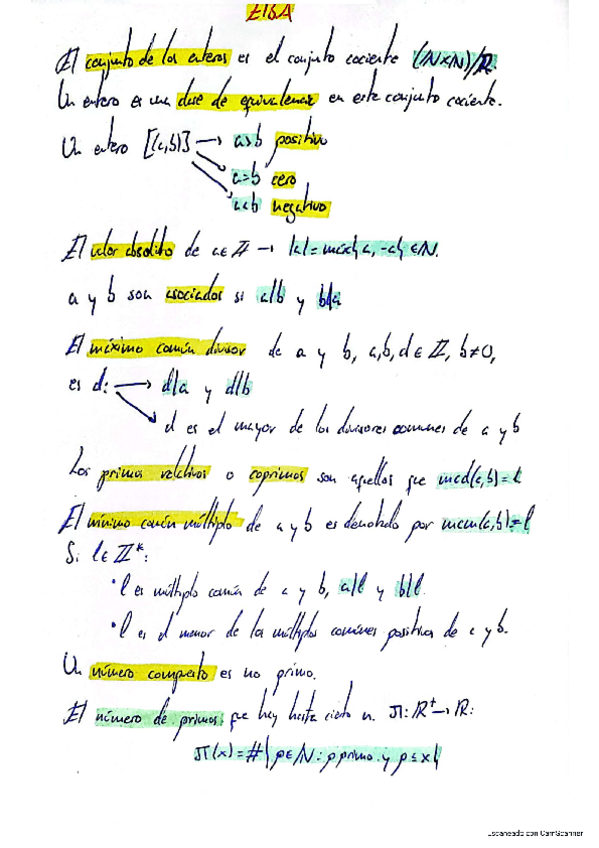 ETSA
El conjunto de los enteros es el conjunto cociente (ℕxℕ)/R.
Un entero es una clase de equivalencia en este conjunto cociente.
Un entero [(a,b)] → a>b positivo
a=b cero
a<b negativo
El valor absoluto de a∈ℤ → |a|=máx{a,-a}∈ℕ.
a y b son asociados si a|b y b|a
El máximo común divisor de a y b, a,b,d∈ℤ, b≠0,
es d: → d|a y d|b
d es el mayor de los divisores comunes de a y b
Los primos relativos o coprimos son aquellos que mcd(a,b)=1
El mínimo común múltiplo de a y b es denotado por mcm(a,b)=l
Si l∈ℤ*:
• l es múltiplo común de a y b, a|l y b|l.
• l es el menor de los múltiplos comunes positivos de a y b.
Un número compuesto es no primo.
El número de primos que hay hasta cierto n. π: ℝ⁺→ℝ:
π(x)=#{p∈ℕ: p primo y p≤x}
Escaneado con CamScanner